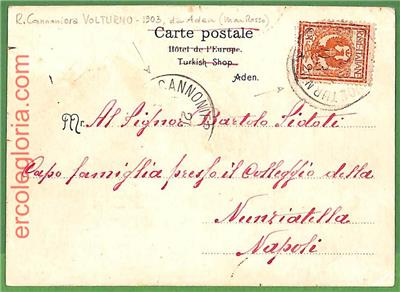 R. Cannoniera VOLTURNO - 1903, da Aden (Mar Rosso)
Carte postale
Hôtel de l'Europe.
Turkish Shop.
Aden.
CANNONIE
VOLTURN
Al Signor Bartolo Sidoti
Capo famiglia presso il Collegio della
Nunziatella
Napoli
ercolegloria.com